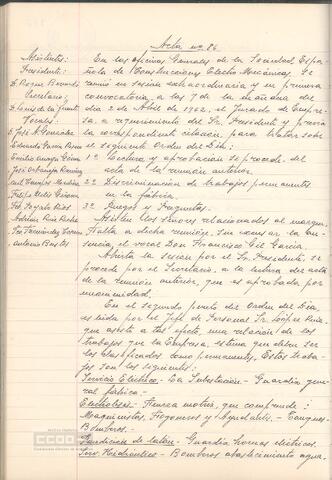 Acta nº 86
Asistentes:
Presidente:
D. Roque Bernardo
Secretario:
D. Luis de la Fuente
Vocales:
D. José A. González
Eduardo García
Emilio Amaya Goima
José Arbaneja Ramírez
Antº Campos Medina
Felipe Nolis Girona
Fco. Payato Rios
Adrian Ruiz Roche
Antonio Bastos
En las oficinas Generales de la Sociedad Espa-
ñola de Construcciones Electro Mecánicas, se
reunió en sesión extraordinaria y en primera
convocatoria a las 7 de la mañana del
dia 2 de Abril de 1962, el Jurado de Empre-
sa, a requerimiento del Sr. Presidente y previa
la correspondiente citación, para tratar sobre
el siguiente Orden del Dia:
1º Lectura y aprobación si procede del
acta de la reunión anterior.
2º Discriminación de trabajos permanentes
en la fábrica.
3º Ruegos y Preguntas.
Asisten los señores relacionados al margen.
Falta a dicha reunión, sin excusar la au-
sencia, el vocal Don Francisco Gil García.
Abierta la sesión por el Sr. Presidente, se
procede por el Secretario, a la lectura del acta
de la reunión anterior, que es aprobada por
unanimidad.
En el segundo punto del Orden del Dia,
es leida por el Jefe de Personal Sr. López
que asiste a tal efecto, una relación de los
trabajos que la Empresa, estima que deben ser
los clasificados como permanentes. Estos traba-
jos son los siguientes:
Servicio Eléctrico.- La Subestación - Guardia gene-
ral fábrica.-
Electrolisis: Fuerza motriz, que comprende:
Maquinistas, Fogoneros y Ayudante.- Tanques-
Bomberos.-
Fundición de latón.- Guardia hornos eléctricos.
Serv. Hidráulico - Bomberos abastecimiento agua.
CCOO